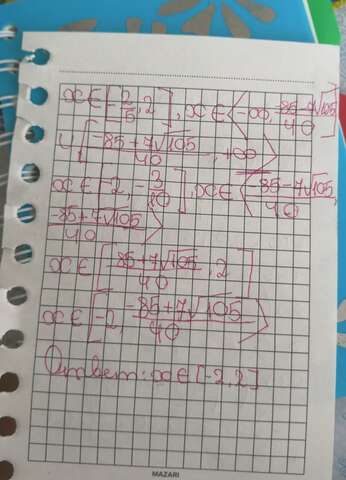 x∈[-2/5, 2], x∈⟨-∞, -85-7√105/40]
∪[-85+7√105/40, +∞⟩
x∈[-2, -3/10], x∈⟨-85-7√105/40,
-85+7√105/40⟩
x∈[-85+7√105/40, 2]
x∈[-2, -85+7√105/40⟩
Ответ: x∈[-2,2]
MAZARI